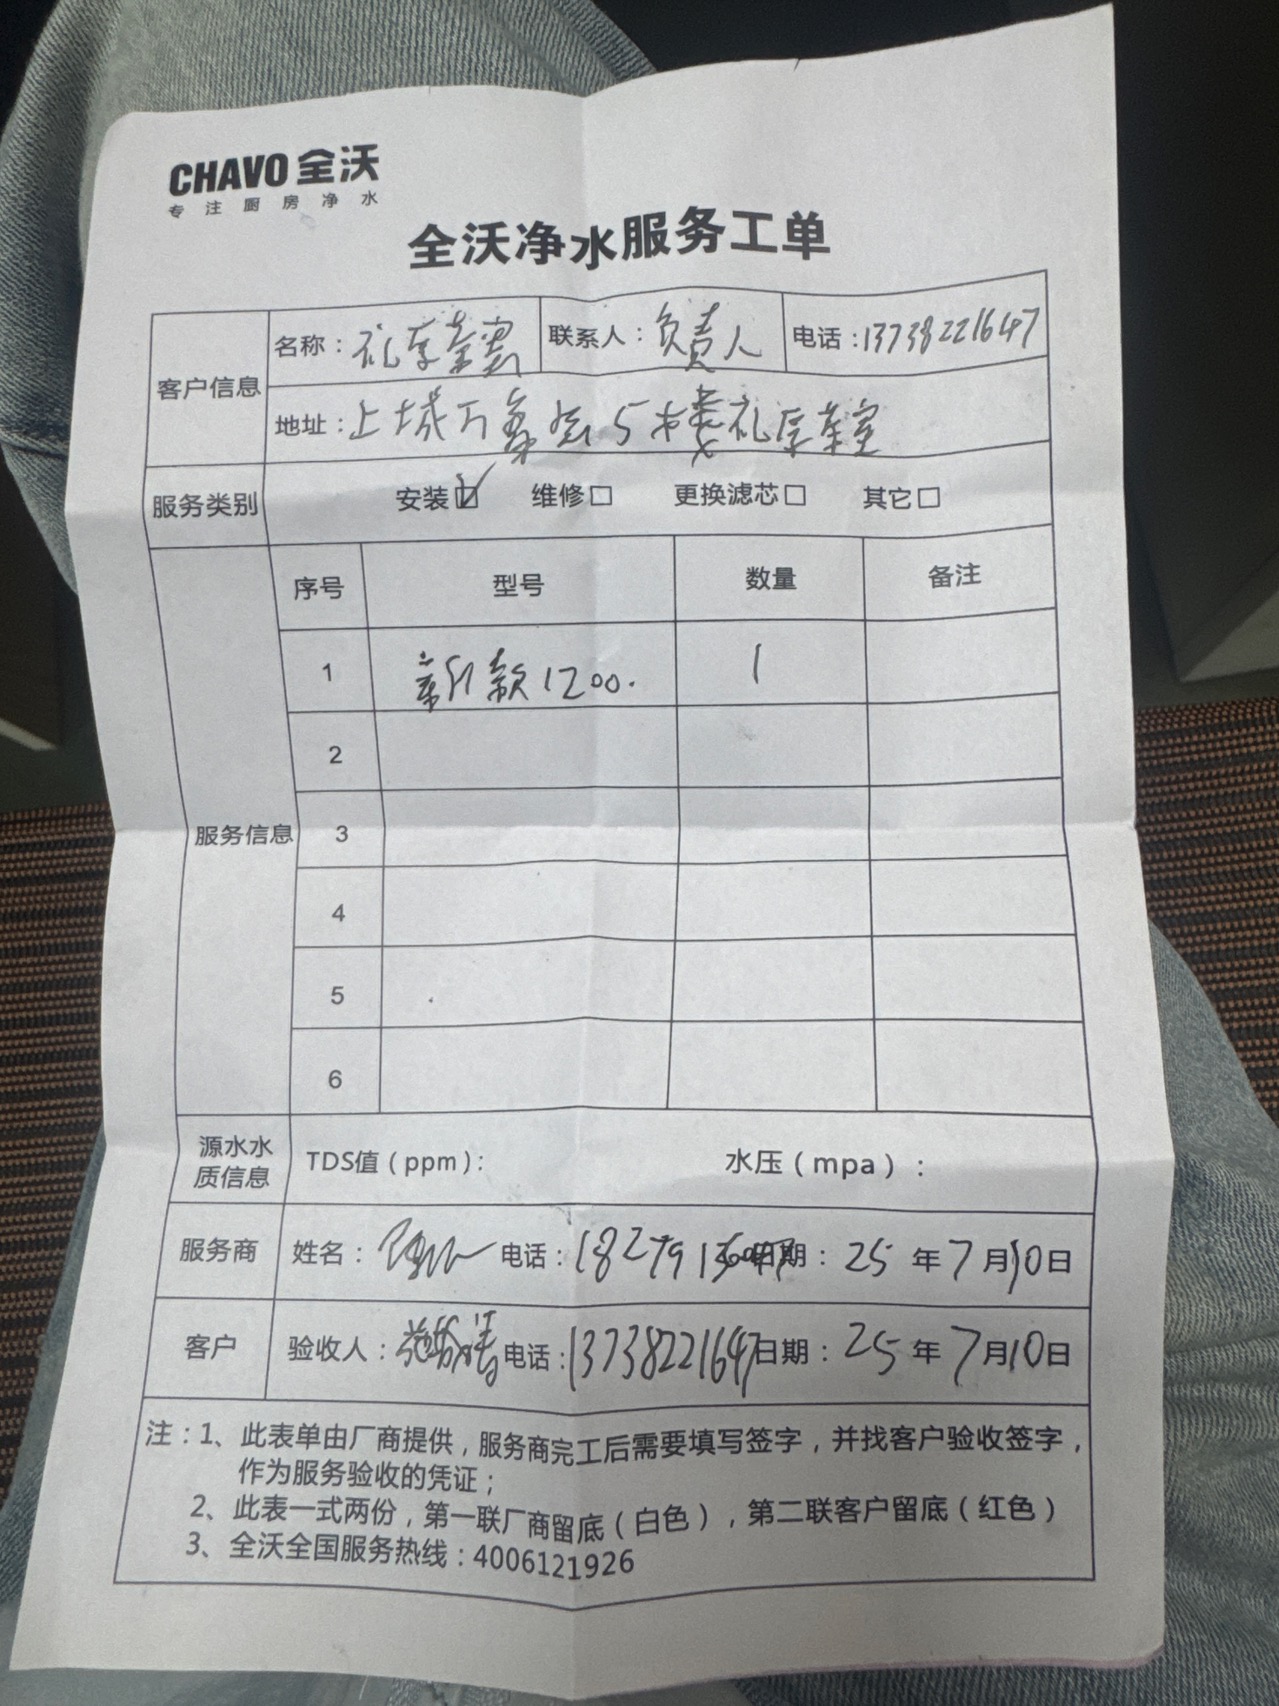 CHAVO 全沃
专注厨房净水
全沃净水服务工单
客户信息
名称：礼厚茶室
联系人：负责人
电话：13738221647
地址：上城万象汇5楼礼厚茶室
服务类别
安装☑ 维修□ 更换滤芯□ 其它□
服务信息
序号 型号 数量 备注
1 新款1200. 1
2
3
4
5
6
源水水质信息
TDS值（ppm）： 水压（mpa）：
服务商 姓名： 电话： 日期：25年7月10日
客户 验收人： 电话：13738221647 日期：25年7月10日
注：1、此表单由厂商提供，服务商完工后需要填写签字，并找客户验收签字，
作为服务验收的凭证；
2、此表一式两份，第一联厂商留底（白色），第二联客户留底（红色）
3、全沃全国服务热线：4006121926